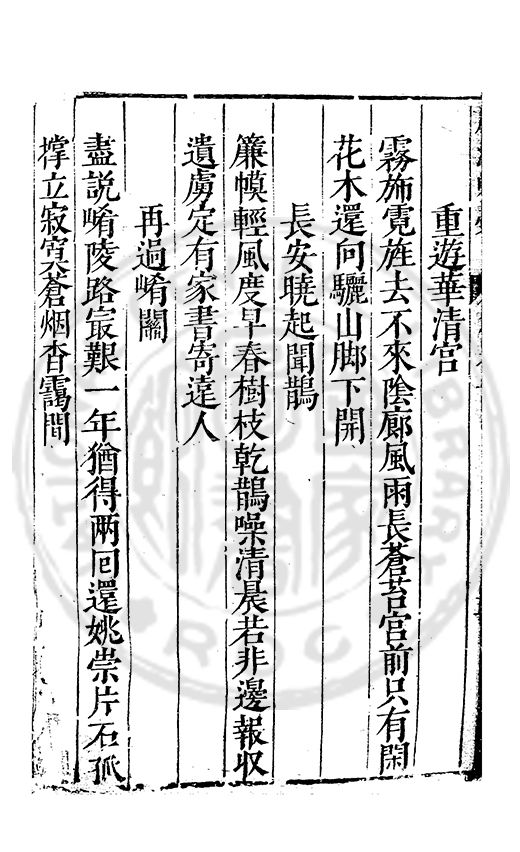 重遊華清宮
霧旆霓旌去不來陰廊風雨長蒼苔宮前只有閑
花木還向驪山脚下開
長安曉起聞鵲
簾幙輕風度早春樹枝乾鵲噪清晨若非邊報収
遺虜定有家書寄遠人
再過崤關
盡説崤陵路㝡艱一年猶得兩回還姚崇片石孤
撑立寂寞蒼烟杳靄間